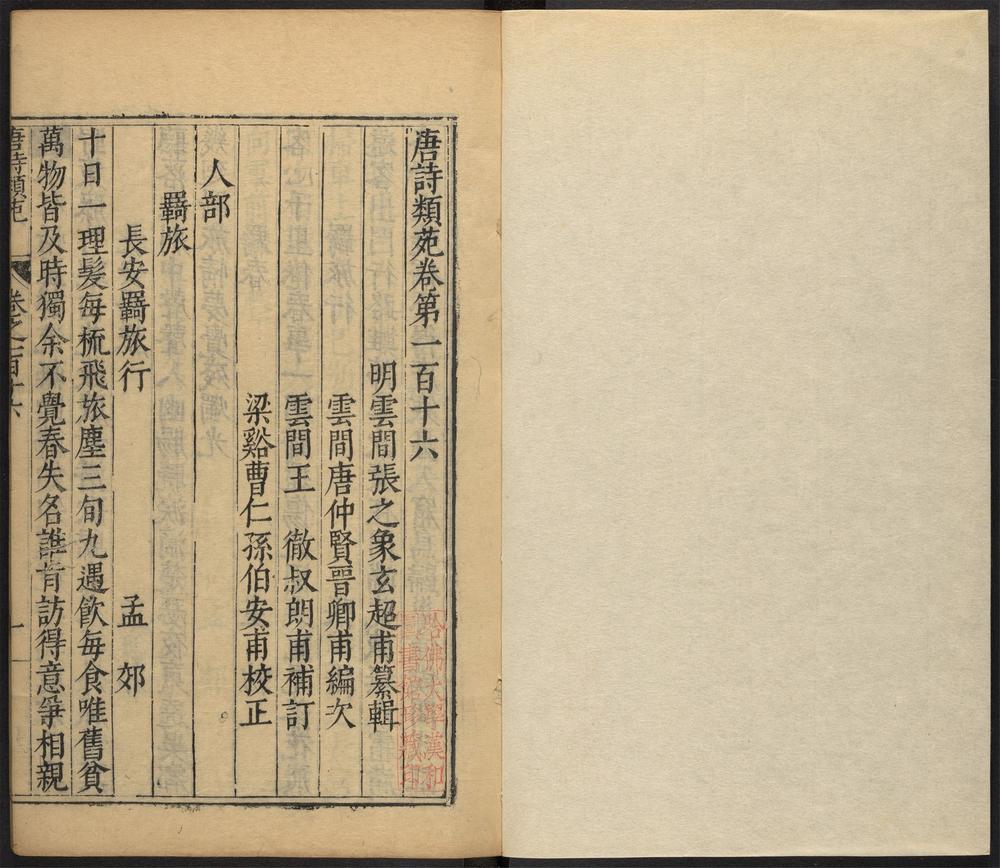 唐詩類苑卷第一百十六
明雲間張之象玄超甫纂輯
雲間唐仲賢晉卿甫編次
雲間王徹叔朗甫補訂
梁谿曹仁孫伯安甫校正
人部
羇旅
長安羇旅行 孟郊
十日一理髮每梳飛旅塵三旬九遇飲每食唯舊貧
萬物皆及時獨余不覺春失名誰肯訪得意爭相親
唐詩類苑 卷之一百十六 一
哈佛大學漢和圖書館珍藏印